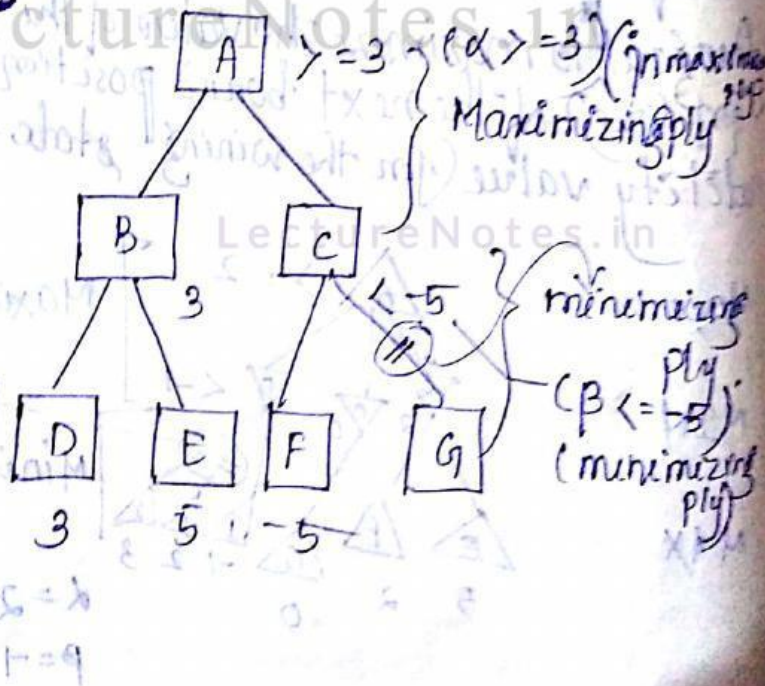 ctureNotes.in
A >=3 (α >=3) (in
Maximizing ply
B C
LectureNotes.in
3 <-5 minimizing
ply
(β <= -5)
(minimizing
ply)
D E F G
3 5 -5